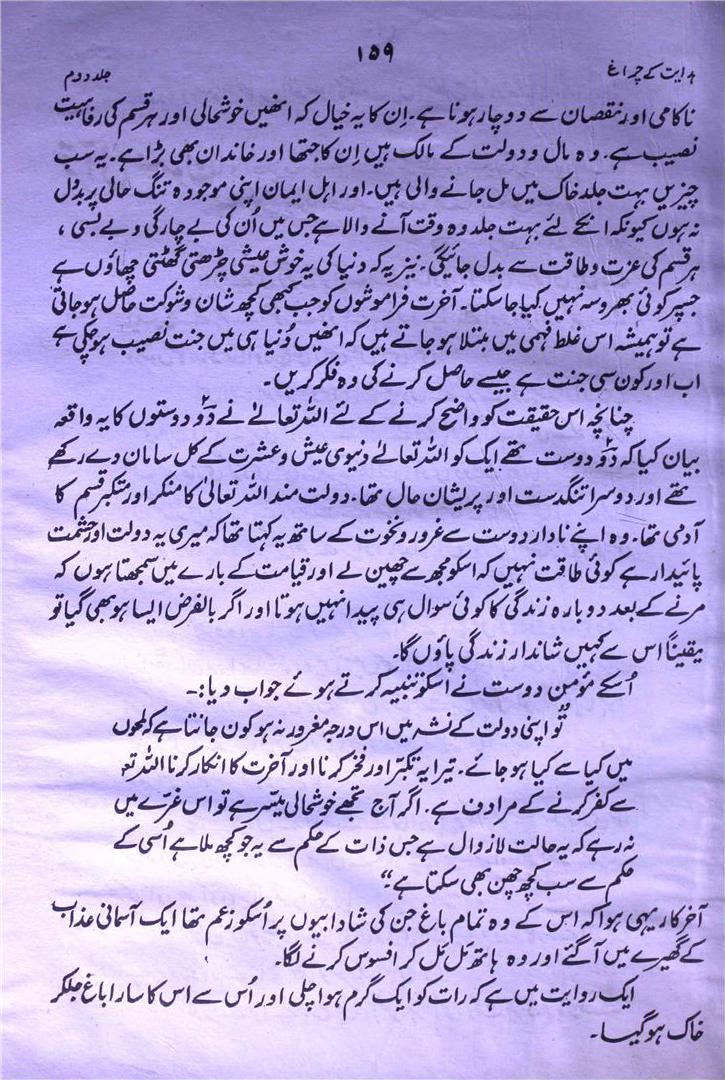 ہدایت کے چراغ
۱۵۹
جلد دوم
ناکامی اور نقصان سے دوچار ہونا ہے۔ اِن کا یہ خیال کہ انھیں خوشحالی اور ہر قسم کی رفاہیت
نصیب ہے۔ وہ مال و دولت کے مالک ہیں اِن کا جتھا اور خاندان بھی بڑا ہے۔ یہ سب
چیزیں بہت جلد خاک میں مل جانے والی ہیں۔ اور اہل ایمان اپنی موجودہ تنگ حالی پر بددل
نہ ہوں کیونکہ انکے لئے بہت جلد وہ وقت آنے والا ہے جس میں اُن کی بے چارگی و بے بسی،
ہر قسم کی عزت و طاقت سے بدل جائیگی۔ نیز یہ کہ دنیا کی یہ خوش عیشی چڑھتی گھٹتی چھاؤں ہے
جسپر کوئی بھروسہ نہیں کیا جا سکتا۔ آخرت فراموشوں کو جب کبھی کچھ شان و شوکت حاصل ہو جاتی
ہے تو ہمیشہ اس غلط فہمی میں مبتلا ہو جاتے ہیں کہ انھیں دُنیا ہی میں جنت نصیب ہو چکی ہے
اب اور کون سی جنت ہے جسے حاصل کرنے کی وہ فکر کریں۔
چنانچہ اس حقیقت کو واضح کرنے کے لئے اللہ تعالےٰ نے دوؔ دوستوں کا یہ واقعہ
بیان کیا کہ دوؔ دوست تھے ایک کو اللہ تعالےٰ دنیوی عیش و عشرت کے کل سامان دے رکھے
تھے اور دوسرا تنگدست اور پریشان حال تھا۔ دولت مند اللہ تعالیٰ کا منکر اور متکبر قسم کا
آدمی تھا۔ وہ اپنے نادار دوست سے غرور و نخوت کے ساتھ یہ کہتا تھا کہ میری یہ دولت اور حشمت
پائیدار ہے کوئی طاقت نہیں کہ اسکو مجھ سے چھین لے اور قیامت کے بارے میں سمجھتا ہوں کہ
مرنے کے بعد دوبارہ زندگی کا کوئی سوال ہی پیدا نہیں ہوتا اور اگر بالفرض ایسا ہو بھی گیا تو
یقیناً اس سے کہیں شاندار زندگی پاؤں گا۔
اُسکے مؤمن دوست نے اسکو تنبیہ کرتے ہوئے جواب دیا:۔
"تو اپنی دولت کے نشہ میں اس درجہ مغرور نہ ہو کون جانتا ہے کہ لمحوں
میں کیا سے کیا ہو جائے۔ تیرا یہ تکبّر اور فخر کرنا اور آخرت کا انکار کرنا اللہ تعہ
سے کفر کرنے کے مرادف ہے۔ اگر آج تجھے خوشحالی میسّر ہے تو اس غرّے میں
نہ رہے کہ یہ حالت لازوال ہے جس ذات کے حکم سے یہ جو کچھ ملا ہے اُسی کے
حکم سے سب کچھ چھن بھی سکتا ہے"
آخر کار یہی ہوا کہ اس کے وہ تمام باغ جن کی شادابیوں پر اُسکو زعم تھا ایک آسمانی عذاب
کے گھیرے میں آگئے اور وہ ہاتھ مَل مَل کر افسوس کرنے لگا۔
ایک روایت میں ہے کہ رات کو ایک گرم ہوا چلی اور اُس سے اس کا سارا باغ جلکر
خاک ہو گیا۔